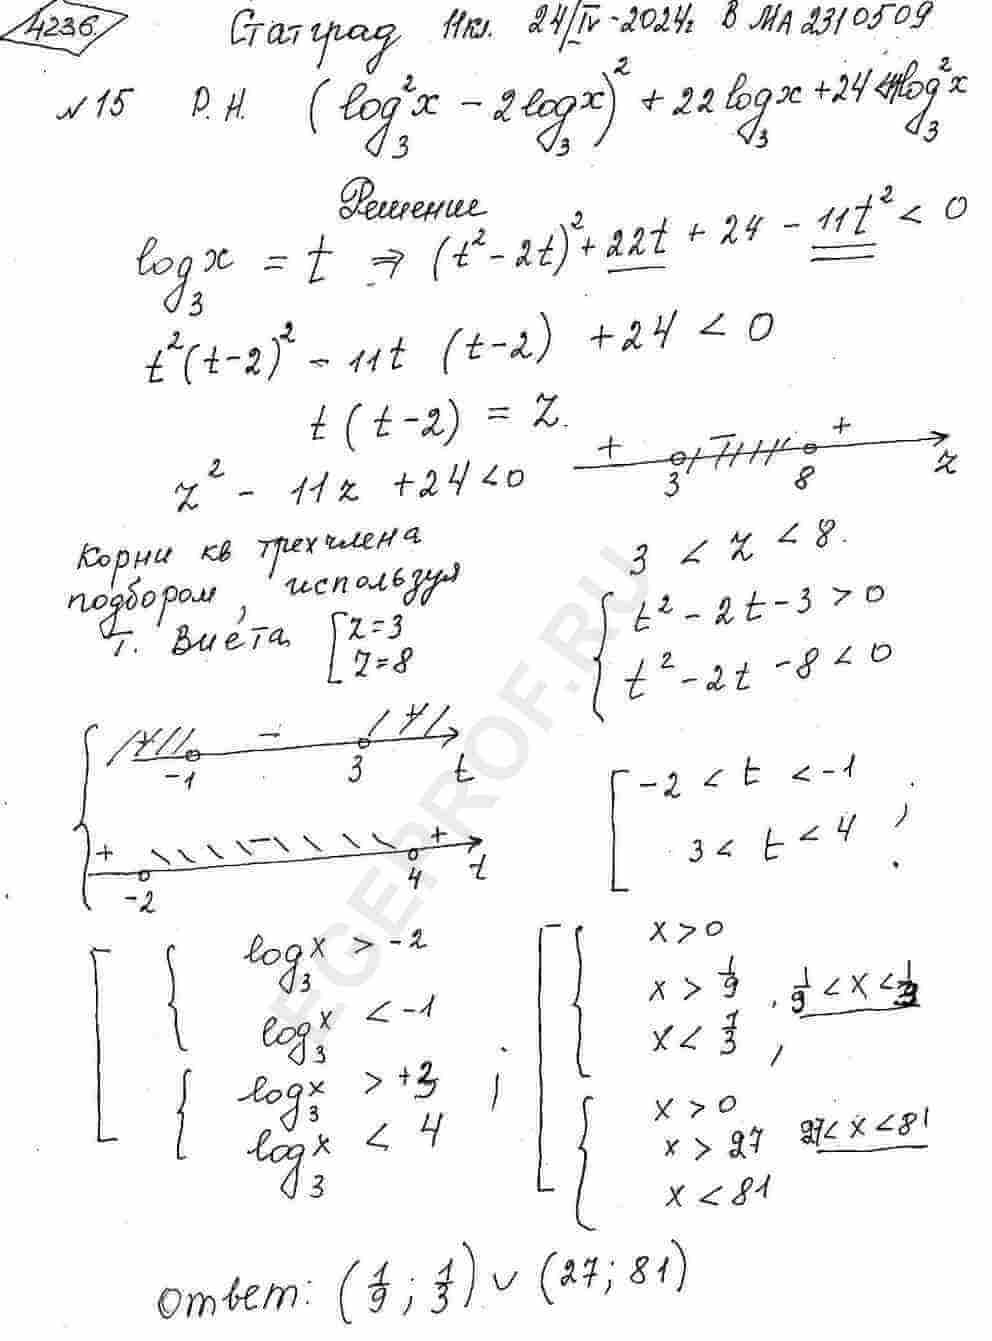 4236.
Статград 11кл. 24/IV-2024г В МА2310509
№15 Р.Н. (log₃²x - 2log₃x)² + 22log₃x + 24 < 11log₃²x
Решение
log₃x = t ⇒ (t² - 2t)² + 22t + 24 - 11t² < 0
t²(t-2)² - 11t (t-2) + 24 < 0
t(t-2) = z.
+ - + 3 8 z
z² - 11z + 24 < 0
Корни кв трехчлена
подбором, используя
т. Виета [ z=3
z=8
3 < z < 8.
{ t² - 2t - 3 > 0
t² - 2t - 8 < 0
{ + - + -1 3 t
+ - + -2 4 t
[ -2 < t < -1
3 < t < 4 ;
[ { log₃x > -2
log₃x < -1
{ log₃x > +3
log₃x < 4 ;
[ { x > 0
x > 1/9
x < 1/3 , 1/9 < x < 1/3
{ x > 0
x > 27
x < 81 27 < x < 81
Ответ: (1/9; 1/3) ∪ (27; 81)
EGEPROF.RU